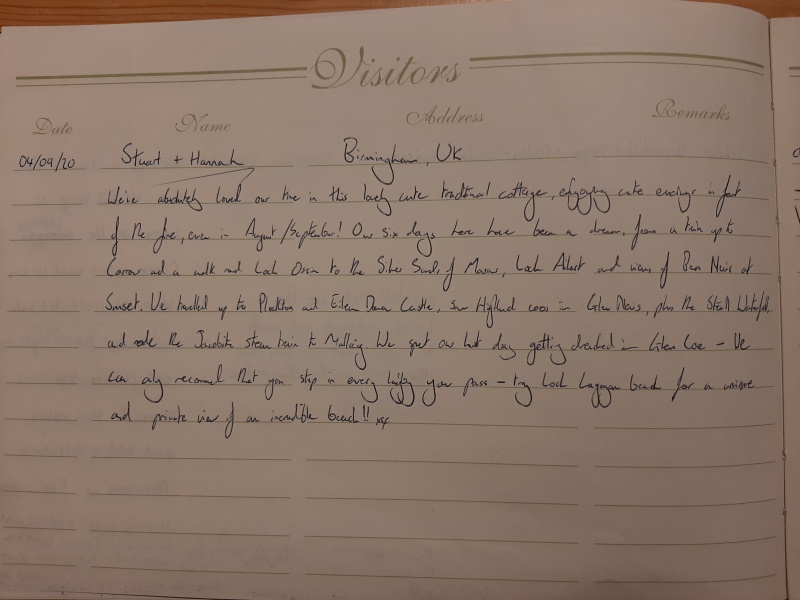 Visitors
Date Name Address Remarks
04/09/20 Stuart + Hannah Birmingham, UK
We've absolutely loved our time in this lovely cute traditional cottage, enjoying cute evenings in front
of the fire, even in August/September! Our six days here have been a dream, from a train up to
Corrour and a walk round Loch Ossian to the Silver Sands of Morar, Loch Ailort and views of Ben Nevis at
Sunset. We travelled up to Plockton and Eilean Donan Castle, saw Highland coos in Glen Nevis, plus the Steall Waterfall
and rode the Jacobite steam train to Mallaig. We spent our last day getting drenched in Glen Coe - We
can only recommend that you stop in every layby you pass - try Loch Laggan beach for a unique
and private view of an incredible beach!! xx